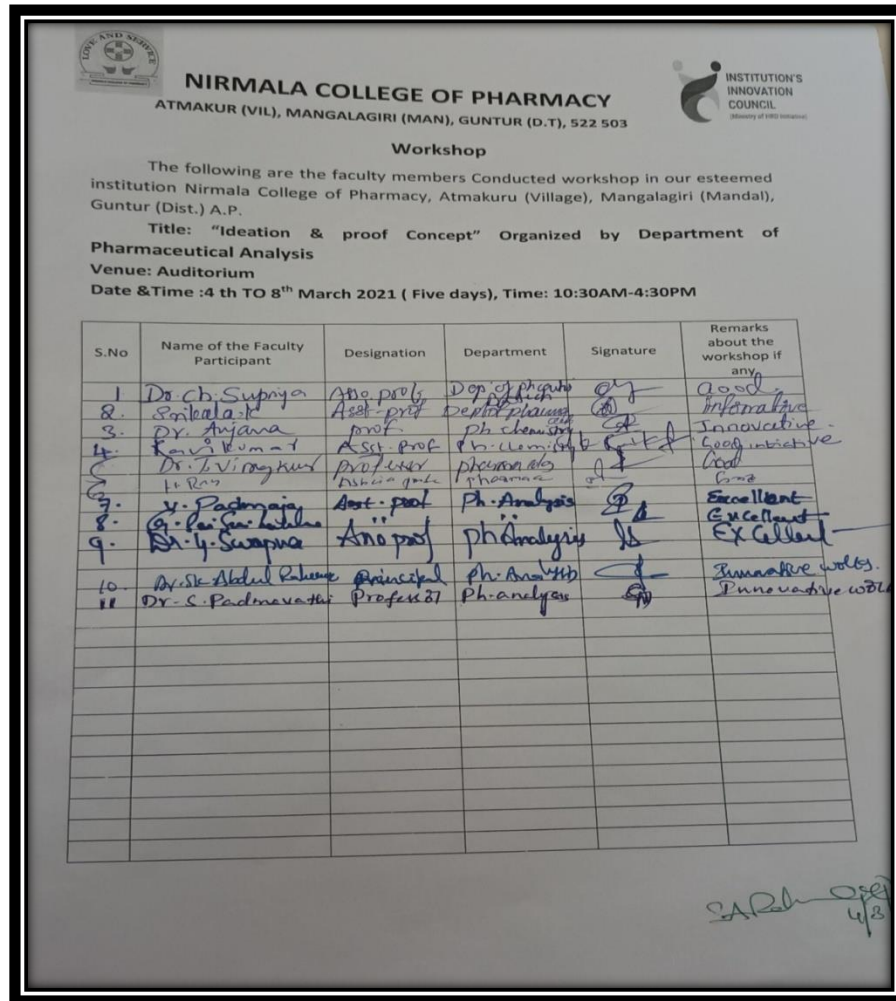 LOVE AND SERVICE
NIRMALA COLLEGE OF PHARMACY
ATMAKUR (VIL), MANGALAGIRI (MAN), GUNTUR (D.T), 522 503
INSTITUTION'S
INNOVATION
COUNCIL
(Ministry of HRD Initiative)
Workshop
The following are the faculty members Conducted workshop in our esteemed
institution Nirmala College of Pharmacy, Atmakuru (Village), Mangalagiri (Mandal),
Guntur (Dist.) A.P.
Title: “Ideation & proof Concept” Organized by Department of
Pharmaceutical Analysis
Venue: Auditorium
Date &Time :4 th TO 8th March 2021 ( Five days), Time: 10:30AM-4:30PM
S.No Name of the Faculty Participant Designation Department Signature Remarks about the workshop if any
1 Dr. Ch. Supriya Good.
2. Srikala.K Asst-prof
3. Dr. Anjana prof. ph.chemistry Innovative.
4. Ravi Kumar Asst. prof Good initiative
Dr. professor Good
7. V. Padmaja Asst. prof Ph. Analysis Excellent
8. Excellent
9. Dr. Swapna ph Analysis Excellent
10. Dr. Sk. Abdul Principal Ph. Analysis
11 Dr. S. Padmavathi Professor Ph. analysis Innovative
4/3